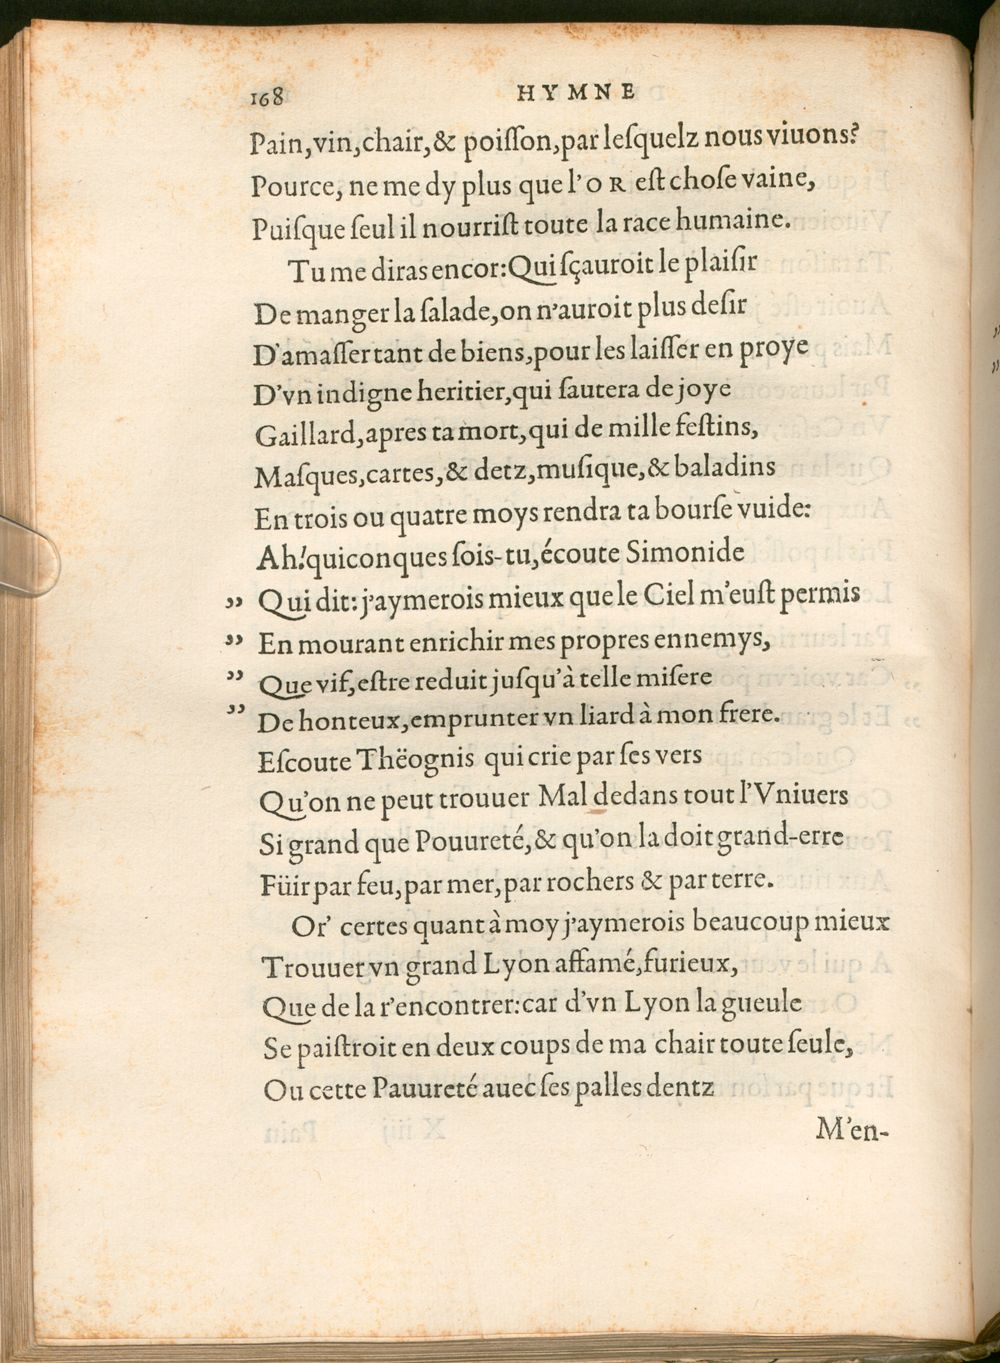 168 HYMNE
Pain, vin, chair, & poiſſon, par leſquelz nous viuons?
Pource, ne me dy plus que l'OR eſt choſe vaine,
Puiſque ſeul il nourriſt toute la race humaine.
Tu me diras encor: Qui ſçauroit le plaiſir
De manger la ſalade, on n'auroit plus deſir
D'amaſſer tant de biens, pour les laiſſer en proye
D'vn indigne heritier, qui ſautera de joye
Gaillard, apres ta mort, qui de mille feſtins,
Maſques, cartes, & detz, muſique, & baladins
En trois ou quatre moys rendra ta bourſe vuide:
Ah! quiconques ſois-tu, écoute Simonide
" Qui dit: j'aymerois mieux que le Ciel m'euſt permis
" En mourant enrichir mes propres ennemys,
" Que vif, eſtre reduit juſqu'à telle miſere
" De honteux, emprunter vn liard à mon frere.
Eſcoute Thëognis qui crie par ſes vers
Qu'on ne peut trouuer Mal dedans tout l'Vniuers
Si grand que Pouureté, & qu'on la doit grand-erre
Füir par feu, par mer, par rochers & par terre.
Or' certes quant à moy j'aymerois beaucoup mieux
Trouuer vn grand Lyon affamé, furieux,
Que de la r'encontrer: car d'vn Lyon la gueule
Se paiſtroit en deux coups de ma chair toute ſeule,
Ou cette Pauureté auec ſes palles dentz
M'en-